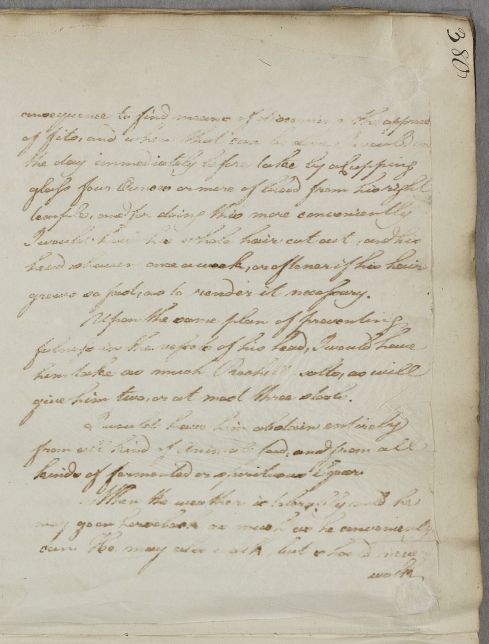 380
consequence to find means of discovering the approach
of fits, and when that can be done I would on
the day immediately before take by a Cupping
glass four Ounces or more of blood from his right
temple, and for doing this more conveniently
I would have his whole hair cut out, and his
head shaven once a week, or oftener if his hair
grows so fast, as to render it necessary.
Upon the same plan of preventing
fulness in the vessels of his head, I would have
him take as much Rochell salts, as will
give him two, or at most three stools.
I would have him abstain entirely
from all kind of Animal food, and from all
kinds of fermented or spirituous liquor.
When the weather is tolerably mild he
may go on horseback as much as he conveniently
can. He may also walk, but should never
walk